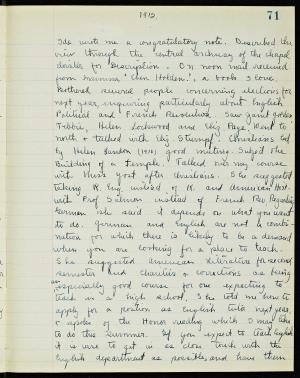 1912. 71
Ide wrote me a congratulatory note. Described the
view through the central archway of the chapel
for description. On noon mail received
from Mamma "Glen Holden", a book I love.
Bothered several people concerning elections for
next year, inquiring particularly about English
Political and French Revolution. Saw Janet
Tebbie, Helen Lockwood and Eliz Page. Went to
north & talked with Christians led
by Helen Landon (1914) good meeting. Subject The
Building of a temple. Talked over my course
with Miss Yost after Christians. She suggested
taking R. Eng. instead of K. and American Hist.
with Prof Salmon instead of French Rev. Regarding
German she said it depends on what you want
to do. German and English are not a combi-
nation for which there is likely to be a demand
when you are looking for a place to teach.
She suggested American literature for second
semester and Charities & corrections as being
especially good course for one expecting to
teach in a high school. She told me how to
apply for a position as English tutor next year
& spoke of the Honor reading which I may like
to do this summer. If you expect to teach English
it is wise to get in as close touch with the
English department as possible and have them